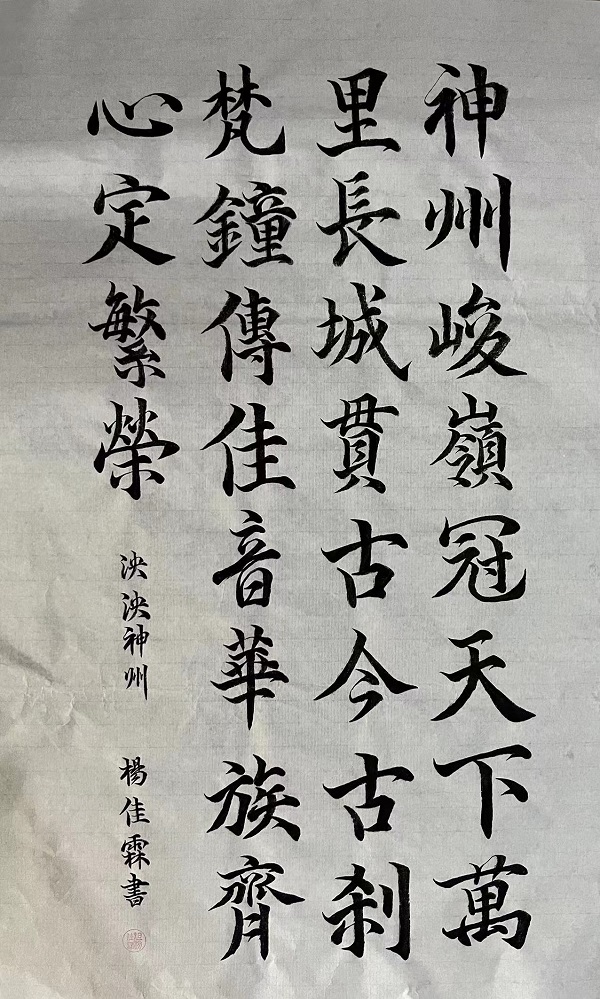 神州峻嶺冠天下萬
里長城貫古今古剎
梵鐘傳佳音華族齊
心定繁榮
泱泱神州
楊佳霖書